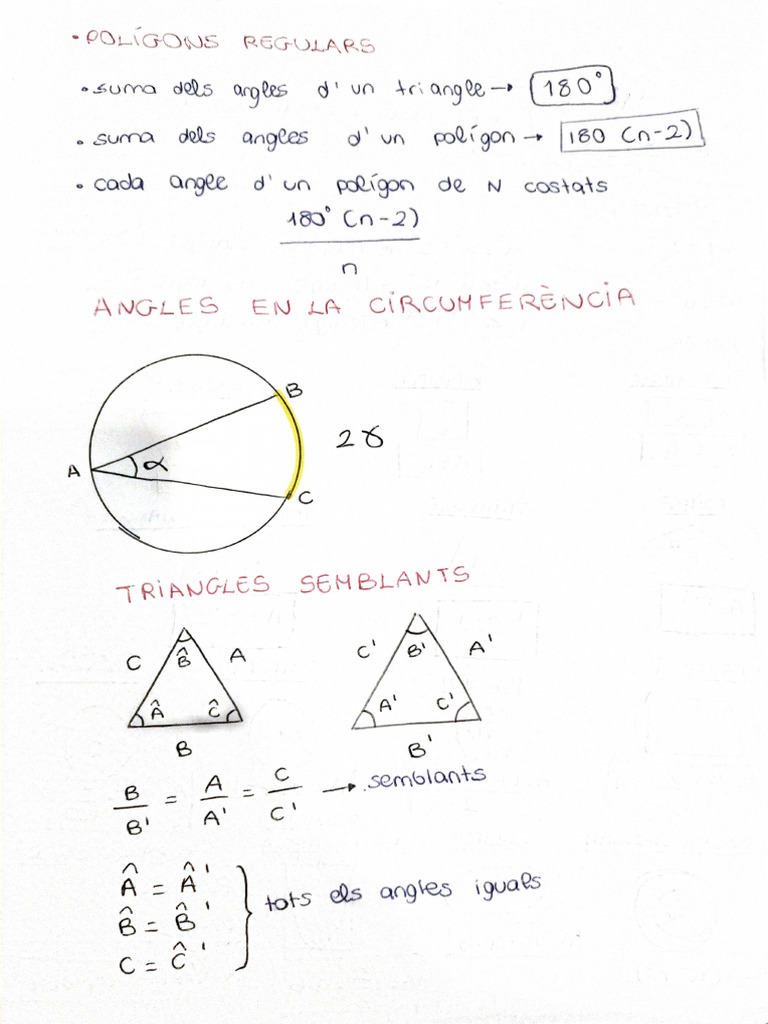 • POLÍGONS REGULARS
• suma dels angles d'un triangle → 180°
• suma dels angles d'un polígon → 180 (n-2)
• cada angle d'un polígon de N costats
180° (n-2)
n
ANGLES EN LA CIRCUMFERÈNCIA
B
A α 2γ
C
TRIANGLES SEMBLANTS
C B̂ A C' B' A'
Â Ĉ A' C'
B B'
B/B' = A/A' = C/C' → semblants
Â = Â'
B̂ = B̂' tots els angles iguals
C = Ĉ'